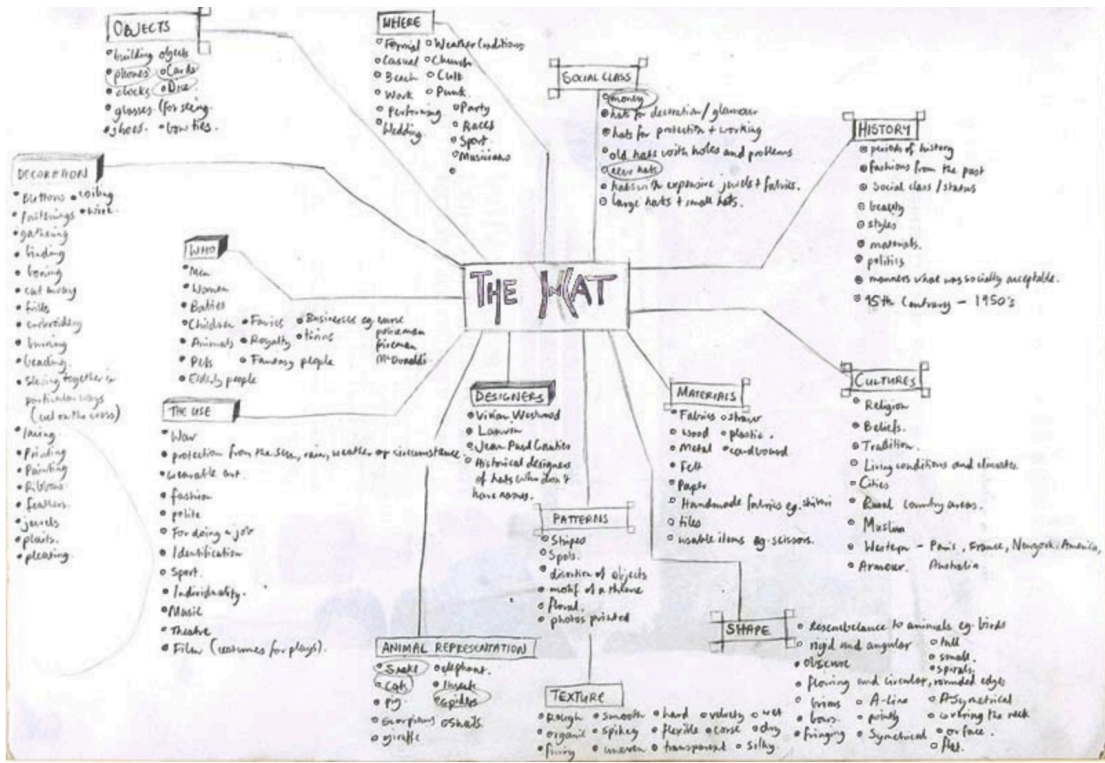 THE HAT
OBJECTS
building objects
phones
Cards
clocks
Dice
glasses (for seeing
shoes.
bow ties.
WHERE
Formal
Weather Conditions
Casual
Church
Beach
Cult
Work
Punk.
Performing
Party
Wedding.
Races
Sport.
Musicians
SOCIAL CLASS
money
hats for decoration/glamour
hats for protection + working
old hats with holes and problems
new hats
hats with expensive jewels + fabrics.
large hats + small hats.
HISTORY
periods of history
fashions from the past
Social class/status
beauty
styles
materials.
politics
manners what was socially acceptable.
15th Century - 1950's
DECORATION
Buttons
coiling
fastenings
wire.
gathering
binding
boning
cut away
frills
embroidery
burning
beading.
together in
particular ways
(cut on the cross)
lacing
Printing
Painting
Ribbons.
feathers
jewels
plaits.
pleating.
WHO
Men
Women
Babies
Children
Faries
Businesses eg. nurse
policeman
fireman
McDonalds
Animals
Royalty
Pets
Fantasy people
Elderly people
THE USE
War
protection from the sun, rain, weather or circumstance.
wearable art.
fashion
polite
For doing a job
Identification
Sport.
Individuality.
Music
Theatre
Film (costumes for plays).
DESIGNERS
Vivian Westwood
Lanvin
Jean Paul Gautier
Historical designers
of hats who don't
have names.
MATERIALS
Fabrics
straw
wood
plastic.
Metal
cardboard
Felt
Paper
Handmade fabrics eg. shibori
tiles
usable items eg. scissors.
CULTURES
Religion
Beliefs.
Tradition.
Living conditions and climates
Cities
Rural country areas.
Muslim
Western - Paris, France, Newyork, America,
Australia
Armour.
PATTERNS
Stripes
Spots.
direction of objects
motif of a theme
floral.
photos printed
ANIMAL REPRESENTATION
Snake
elephant.
Cats
Insects
pig.
Spider
Scorpions
giraffe
TEXTURE
Rough
smooth
hard
velvety
wet
organic
spikey
flexible
corse
dry
furry
uneven
transparent
silky.
SHAPE
resemebelance to animals eg. birds
rigid and angular
tall
obscure
small.
spirals.
flowing and circular, rounded edges
brims
A-line
ASymetrical
bows.
pointy
covering the neck
or face.
fringing
Symetrical
flat.